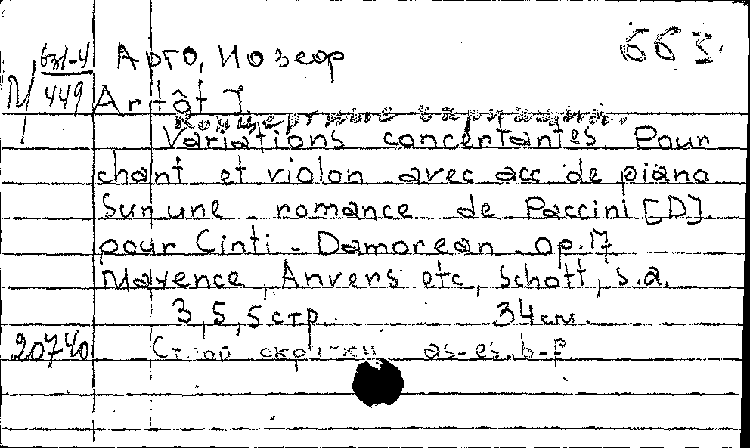 663.
М 631-4 Арто, Иозеф
449 Artôt J
Концертные вариации.
Variations concertantes pour
chant et violon avec acc de piano
sur une romance de Paccini [D].
pour Cinti - Damorean. op. 17
Mayence, Anvers etc, Schott, s.a.
3, 5, 5 стр. 34 см.
20740 Строй скрипки as-es-b-f